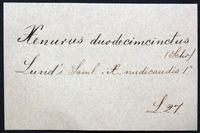 Xenurus duodecimcinctus
(Schr)
Lund's Saml. X. nudicaudis 1"
L 27